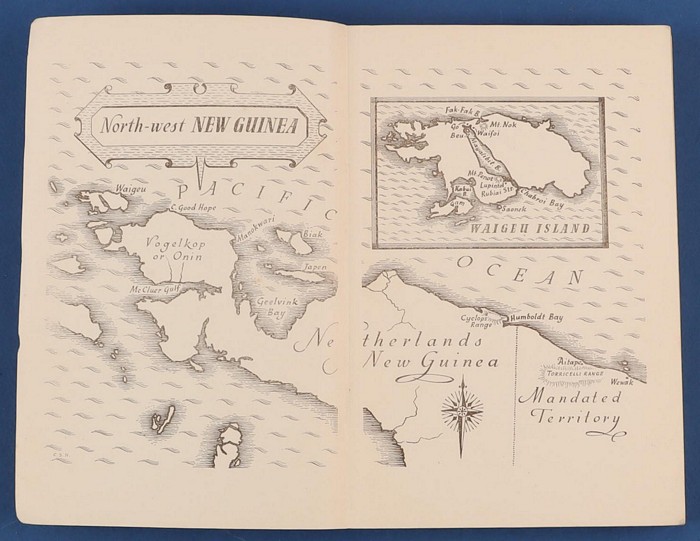 North-west NEW GUINEA
PACIFIC
Waigeu
C. Good Hope
Manokwari
Biak
Vogelkop
or Onin
Japen
Mc Cluer Gulf
Geelvink
Bay
Fak-Fak B.
Mt. Nok
Go
Beu
Waifoi
Kabui
B.
Lupintol
Rubiai Str
Gam
Chabrol Bay
Saonek
WAIGEU ISLAND
OCEAN
Cyclops
Range
Humboldt Bay
Netherlands
New Guinea
Aitape
TORRICELLI RANGE
Wewak
Mandated
Territory